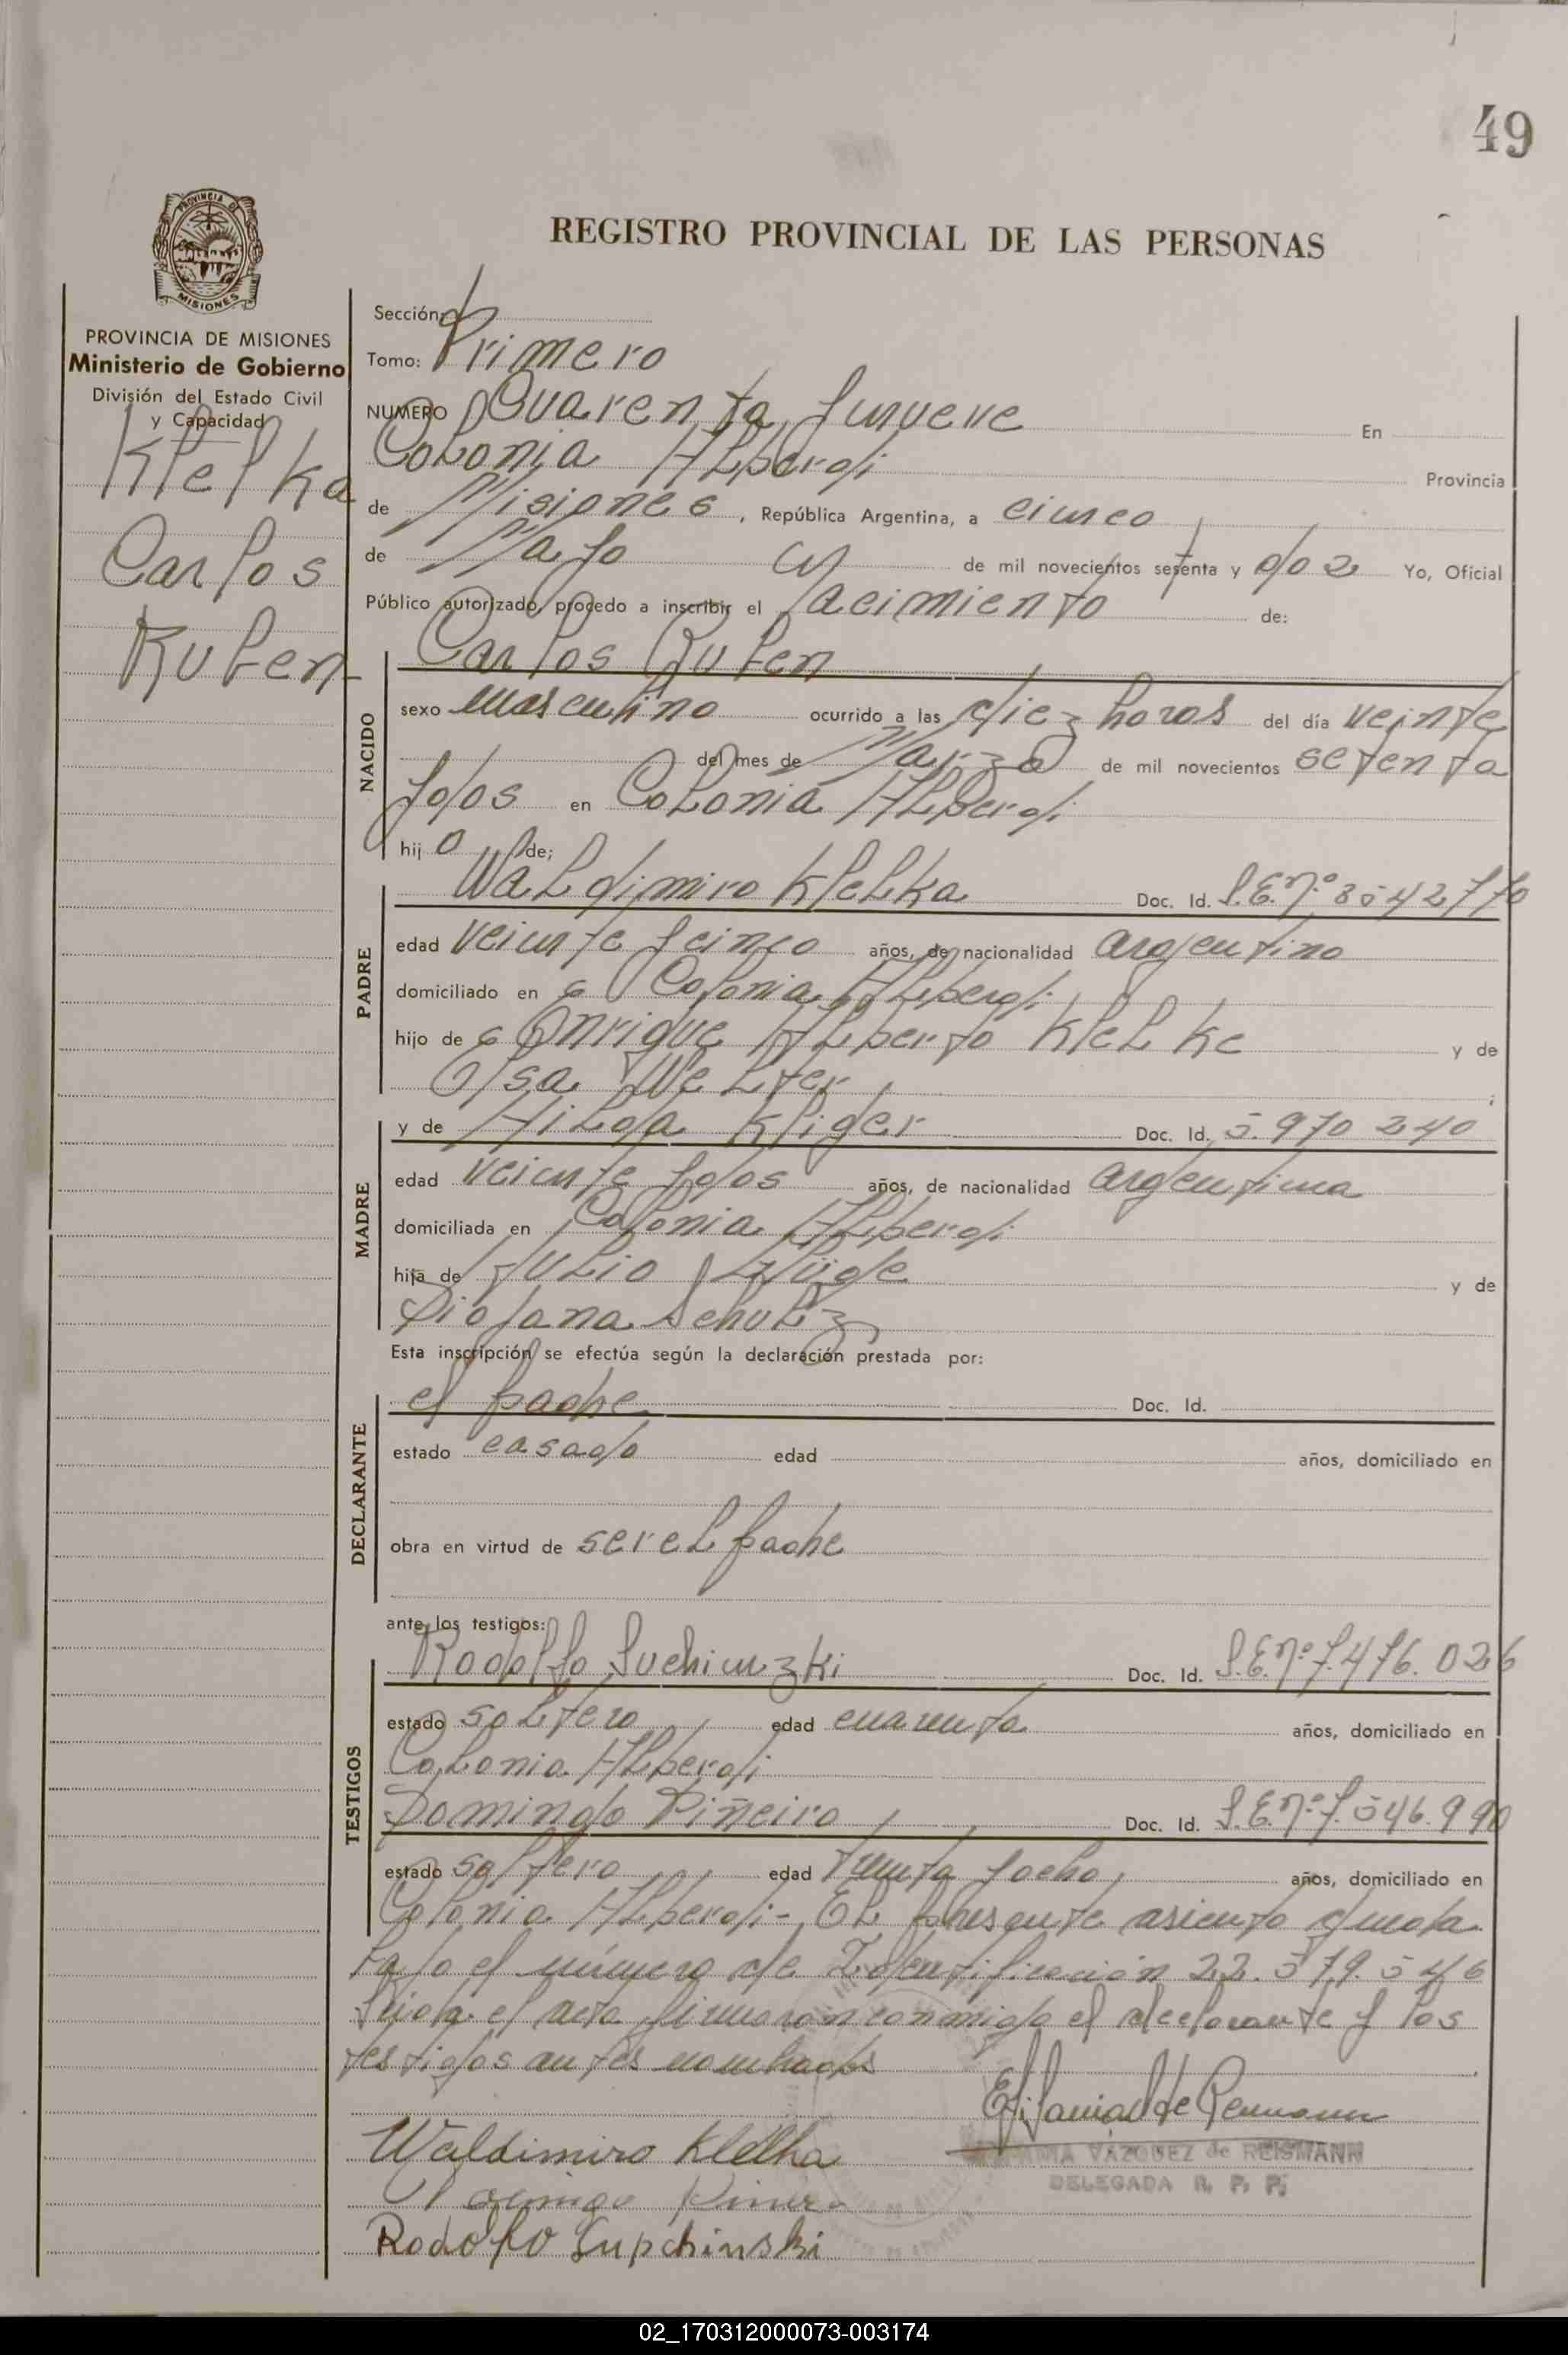 49
PROVINCIA DE
MISIONES
REGISTRO PROVINCIAL DE LAS PERSONAS
PROVINCIA DE MISIONES
Ministerio de Gobierno
División del Estado Civil
y Capacidad
Klelka
Carlos
Ruben-
Sección:
Tomo: Primero
NUMERO Cuarenta y nueve En
Colonia Alberdi Provincia
de Misiones, República Argentina, a cinco
de Mayo de mil novecientos setenta y dos Yo, Oficial
Público autorizado, procedo a inscribir el nacimiento de:
Carlos Ruben
NACIDO
sexo masculino ocurrido a las diez horas del día veinte
del mes de Marzo de mil novecientos setenta
y dos en Colonia Alberdi
hijo de;
PADRE
Waldimiro Klelka Doc. Id. L.E.Nº 8542770
edad veinte y cinco años, de nacionalidad argentino
domiciliado en Colonia Alberdi
hijo de Enrique Alberto Klelke y de
Olga Welter;
MADRE
y de Hilda Kliger Doc. Id. 5.970 240
edad veinte y dos años, de nacionalidad argentina
domiciliada en Colonia Alberdi
hija de Julio y de
Schultz
Esta inscripción se efectúa según la declaración prestada por:
DECLARANTE
el padre Doc. Id.
estado casado edad años, domiciliado en
obra en virtud de ser el padre
ante los testigos:
TESTIGOS
Rodolfo Doc. Id. L.E.Nº 7.476.026
estado soltero edad cuarenta años, domiciliado en
Colonia Alberdi
Domingo Piñeiro Doc. Id. L.E.Nº 7.546.990
estado soltero edad treinta y ocho años, domiciliado en
Colonia Alberdi- El presente asiento queda
bajo el número de Identificación 22.579.546
Leida el acta firmaron conmigo el declarante y los
testigos antes nombrados
Waldimiro Klelka
VAZQUEZ de REISMANN
DELEGADA R. P. P.
Domingo
Rodolfo Lupchinski
02_170312000073-003174